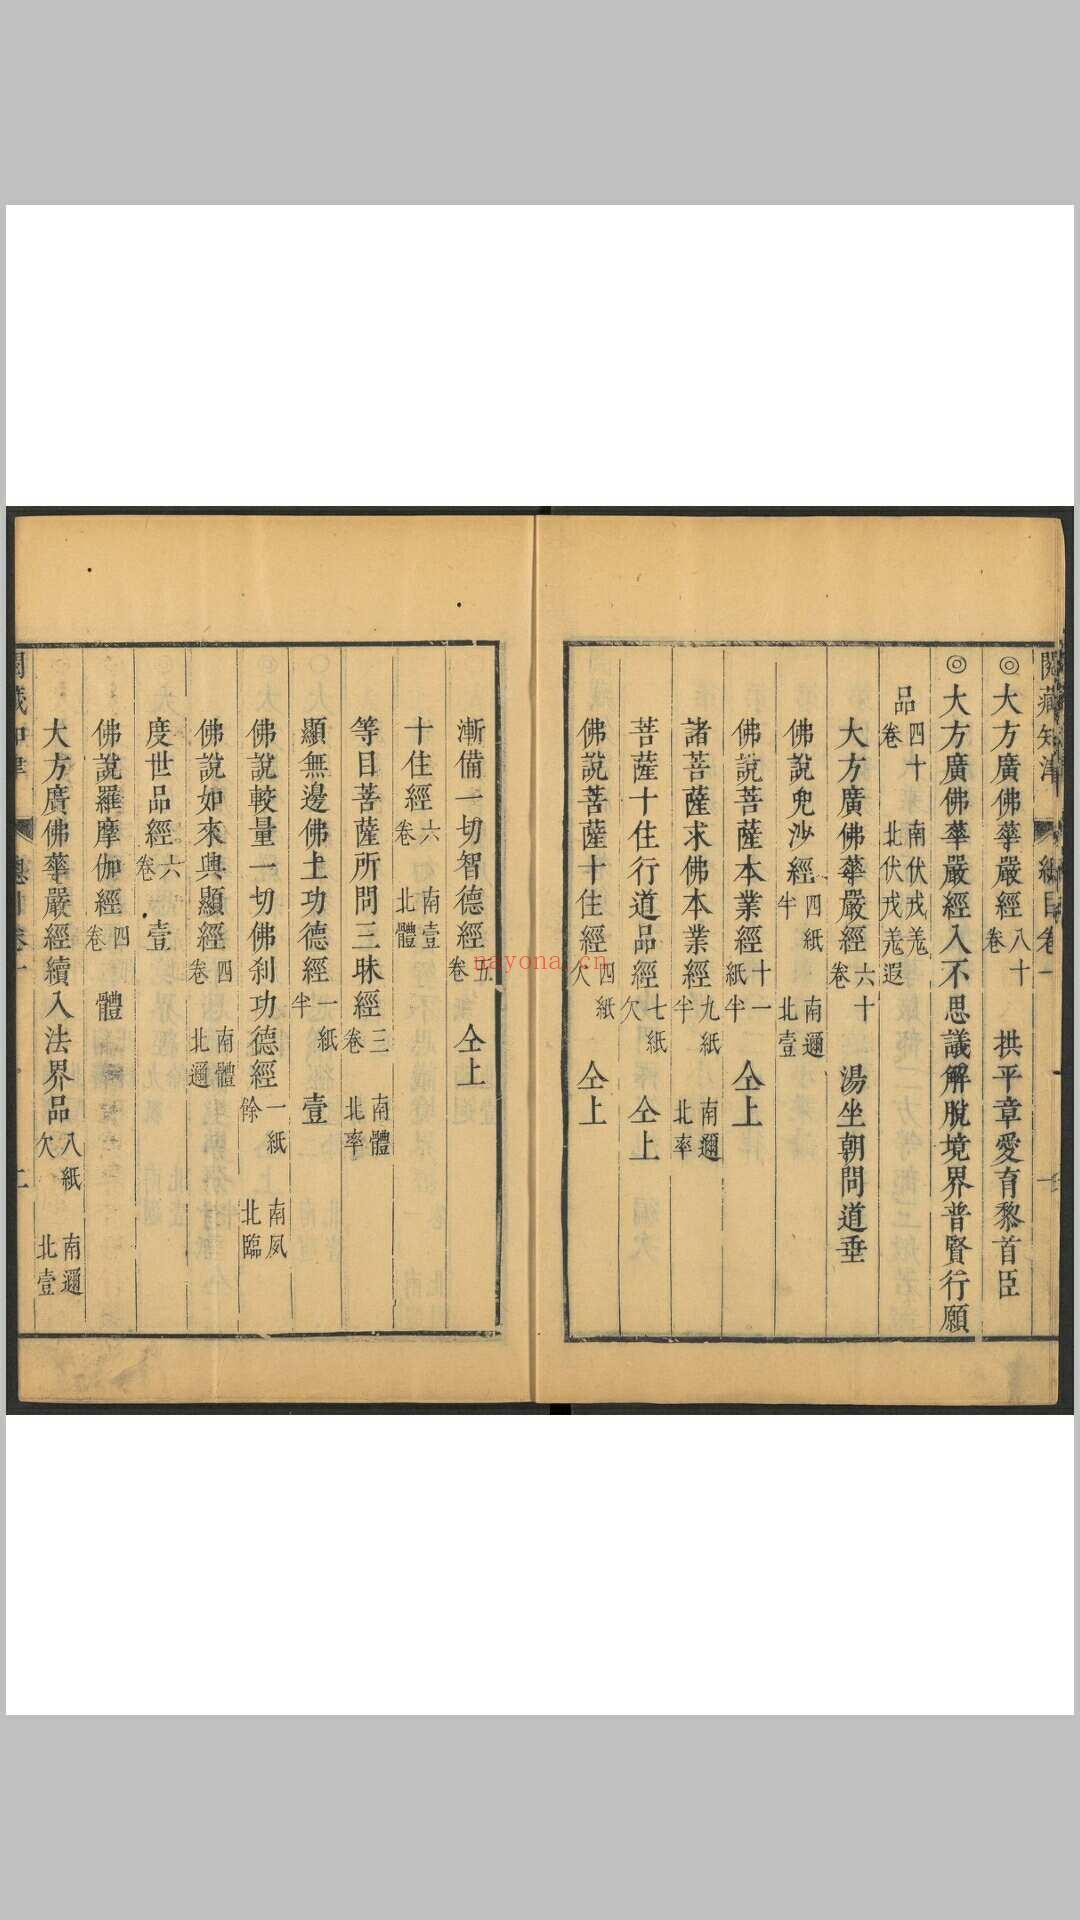 閱藏知津 總目卷一 一
◎大方廣佛華嚴經 八十卷 拱平章愛育黎首臣
◎大方廣佛華嚴經入不思議解脫境界普賢行願
品 四十卷 南伏戎羗 北伏戎羗遐
大方廣佛華嚴經 六十卷 湯坐朝問道垂
佛說兜沙經 四紙半 南邇 北壹
佛說菩薩本業經 十一紙半 仝上
諸菩薩求佛本業經 九紙半 南邇 北率
菩薩十住行道品經 七紙欠 仝上
佛說菩薩十住經 四紙欠 仝上
漸備一切智德經 五卷 仝上
十住經 六卷 南壹 北體
等目菩薩所問三昧經 三卷 南體 北率
顯無邊佛土功德經 一紙半 壹
佛說較量一切佛刹功德經 一紙餘 南夙 北臨
佛說如來興顯經 四卷 南體 北邇
度世品經 六卷 壹
佛說羅摩伽經 四卷 體
大方廣佛華嚴經續入法界品 八紙欠 南邇 北壹
nayona.cn